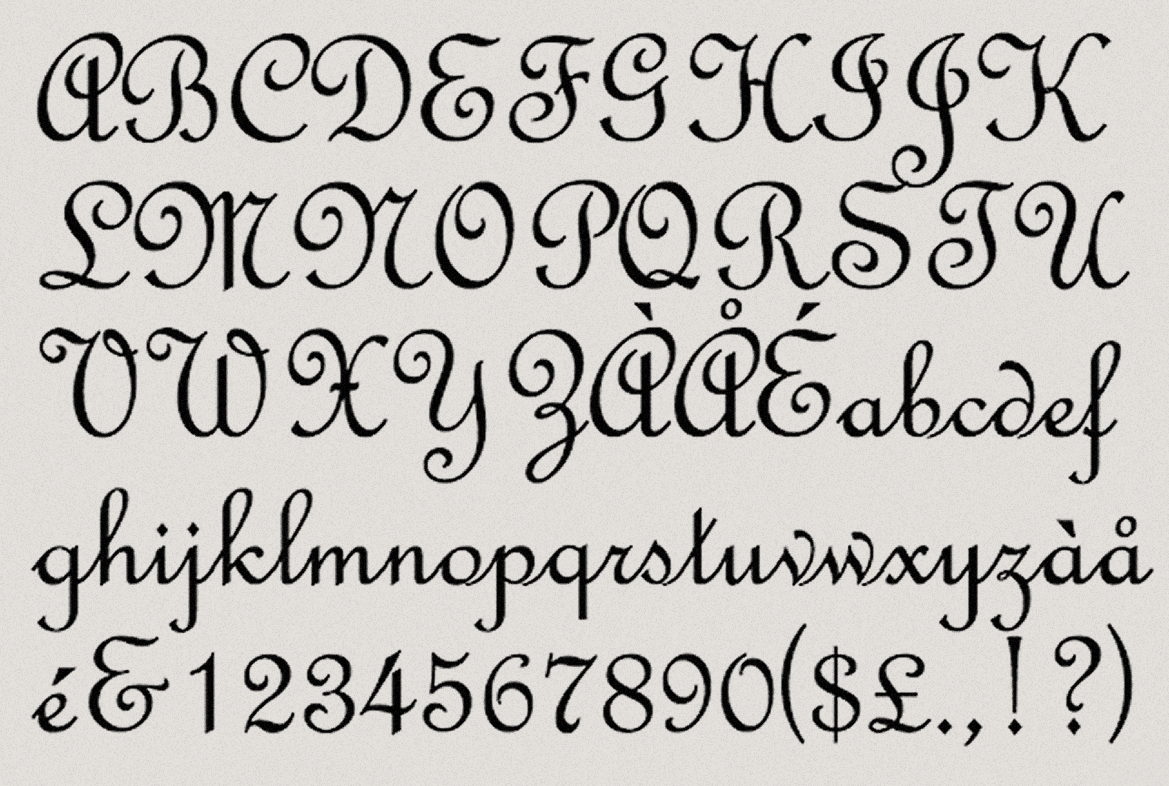 ABCDEFGHIJK
LMNOPQRSTU
VWXYZÀÅÉabcdef
ghijklmnopqrstuvwxyzàå
é&1234567890($£.,!?)